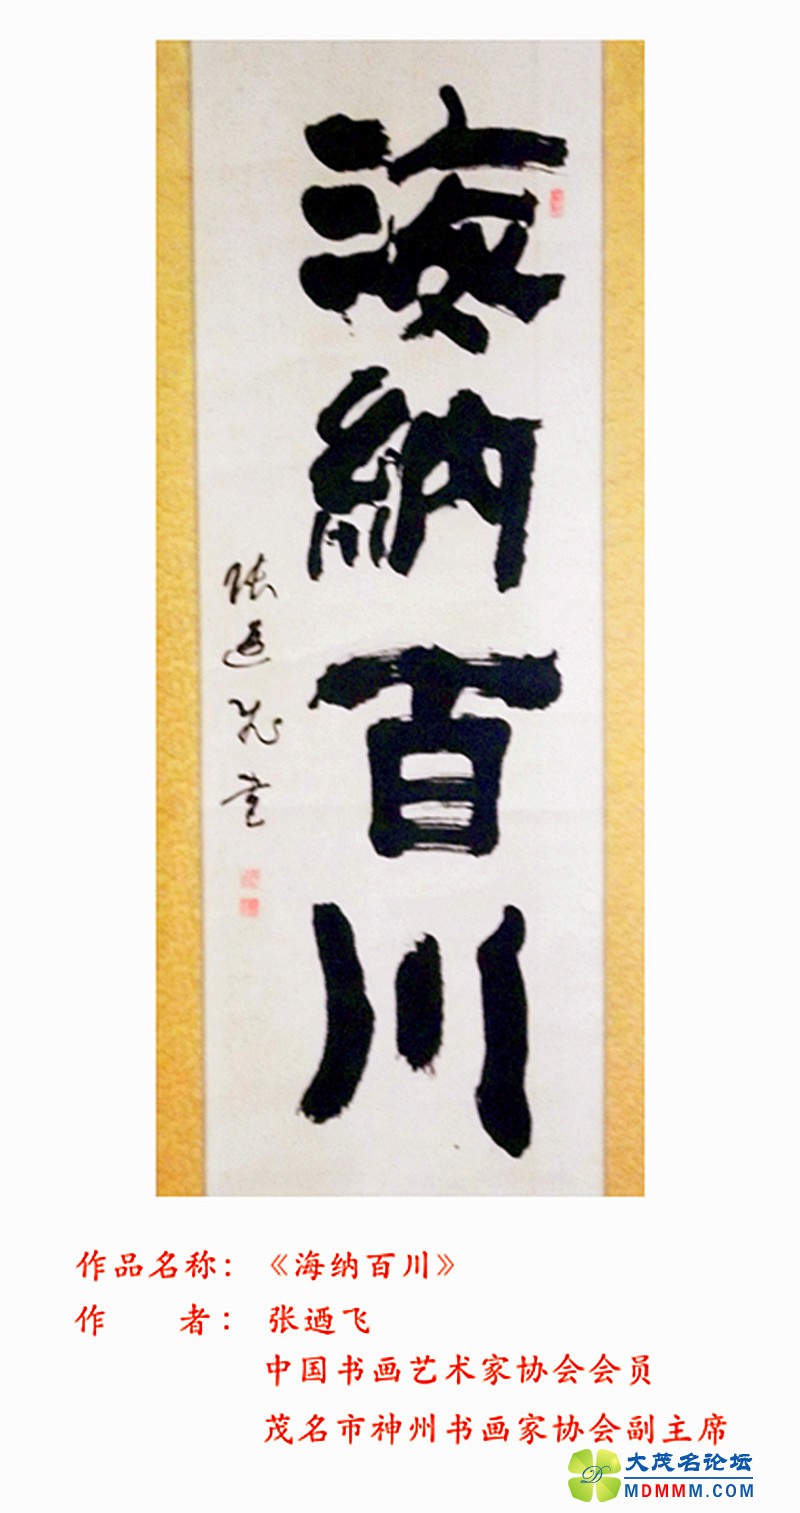 海納百川
张迺飞书
作品名称：《海纳百川》
作 者：张迺飞
中国书画艺术家协会会员
茂名市神州书画家协会副主席
大茂名论坛
MDMMM.COM